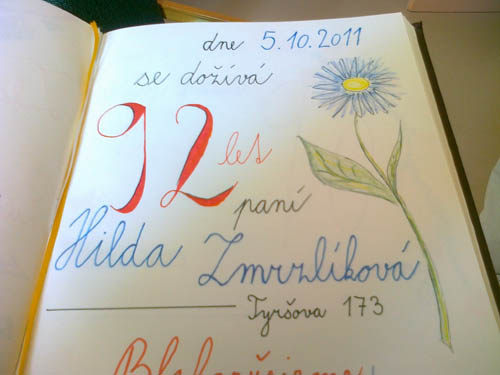 dne 5.10.2011
se dožívá
92 let
paní
Hilda Zmrzlíková
Tyršova 173